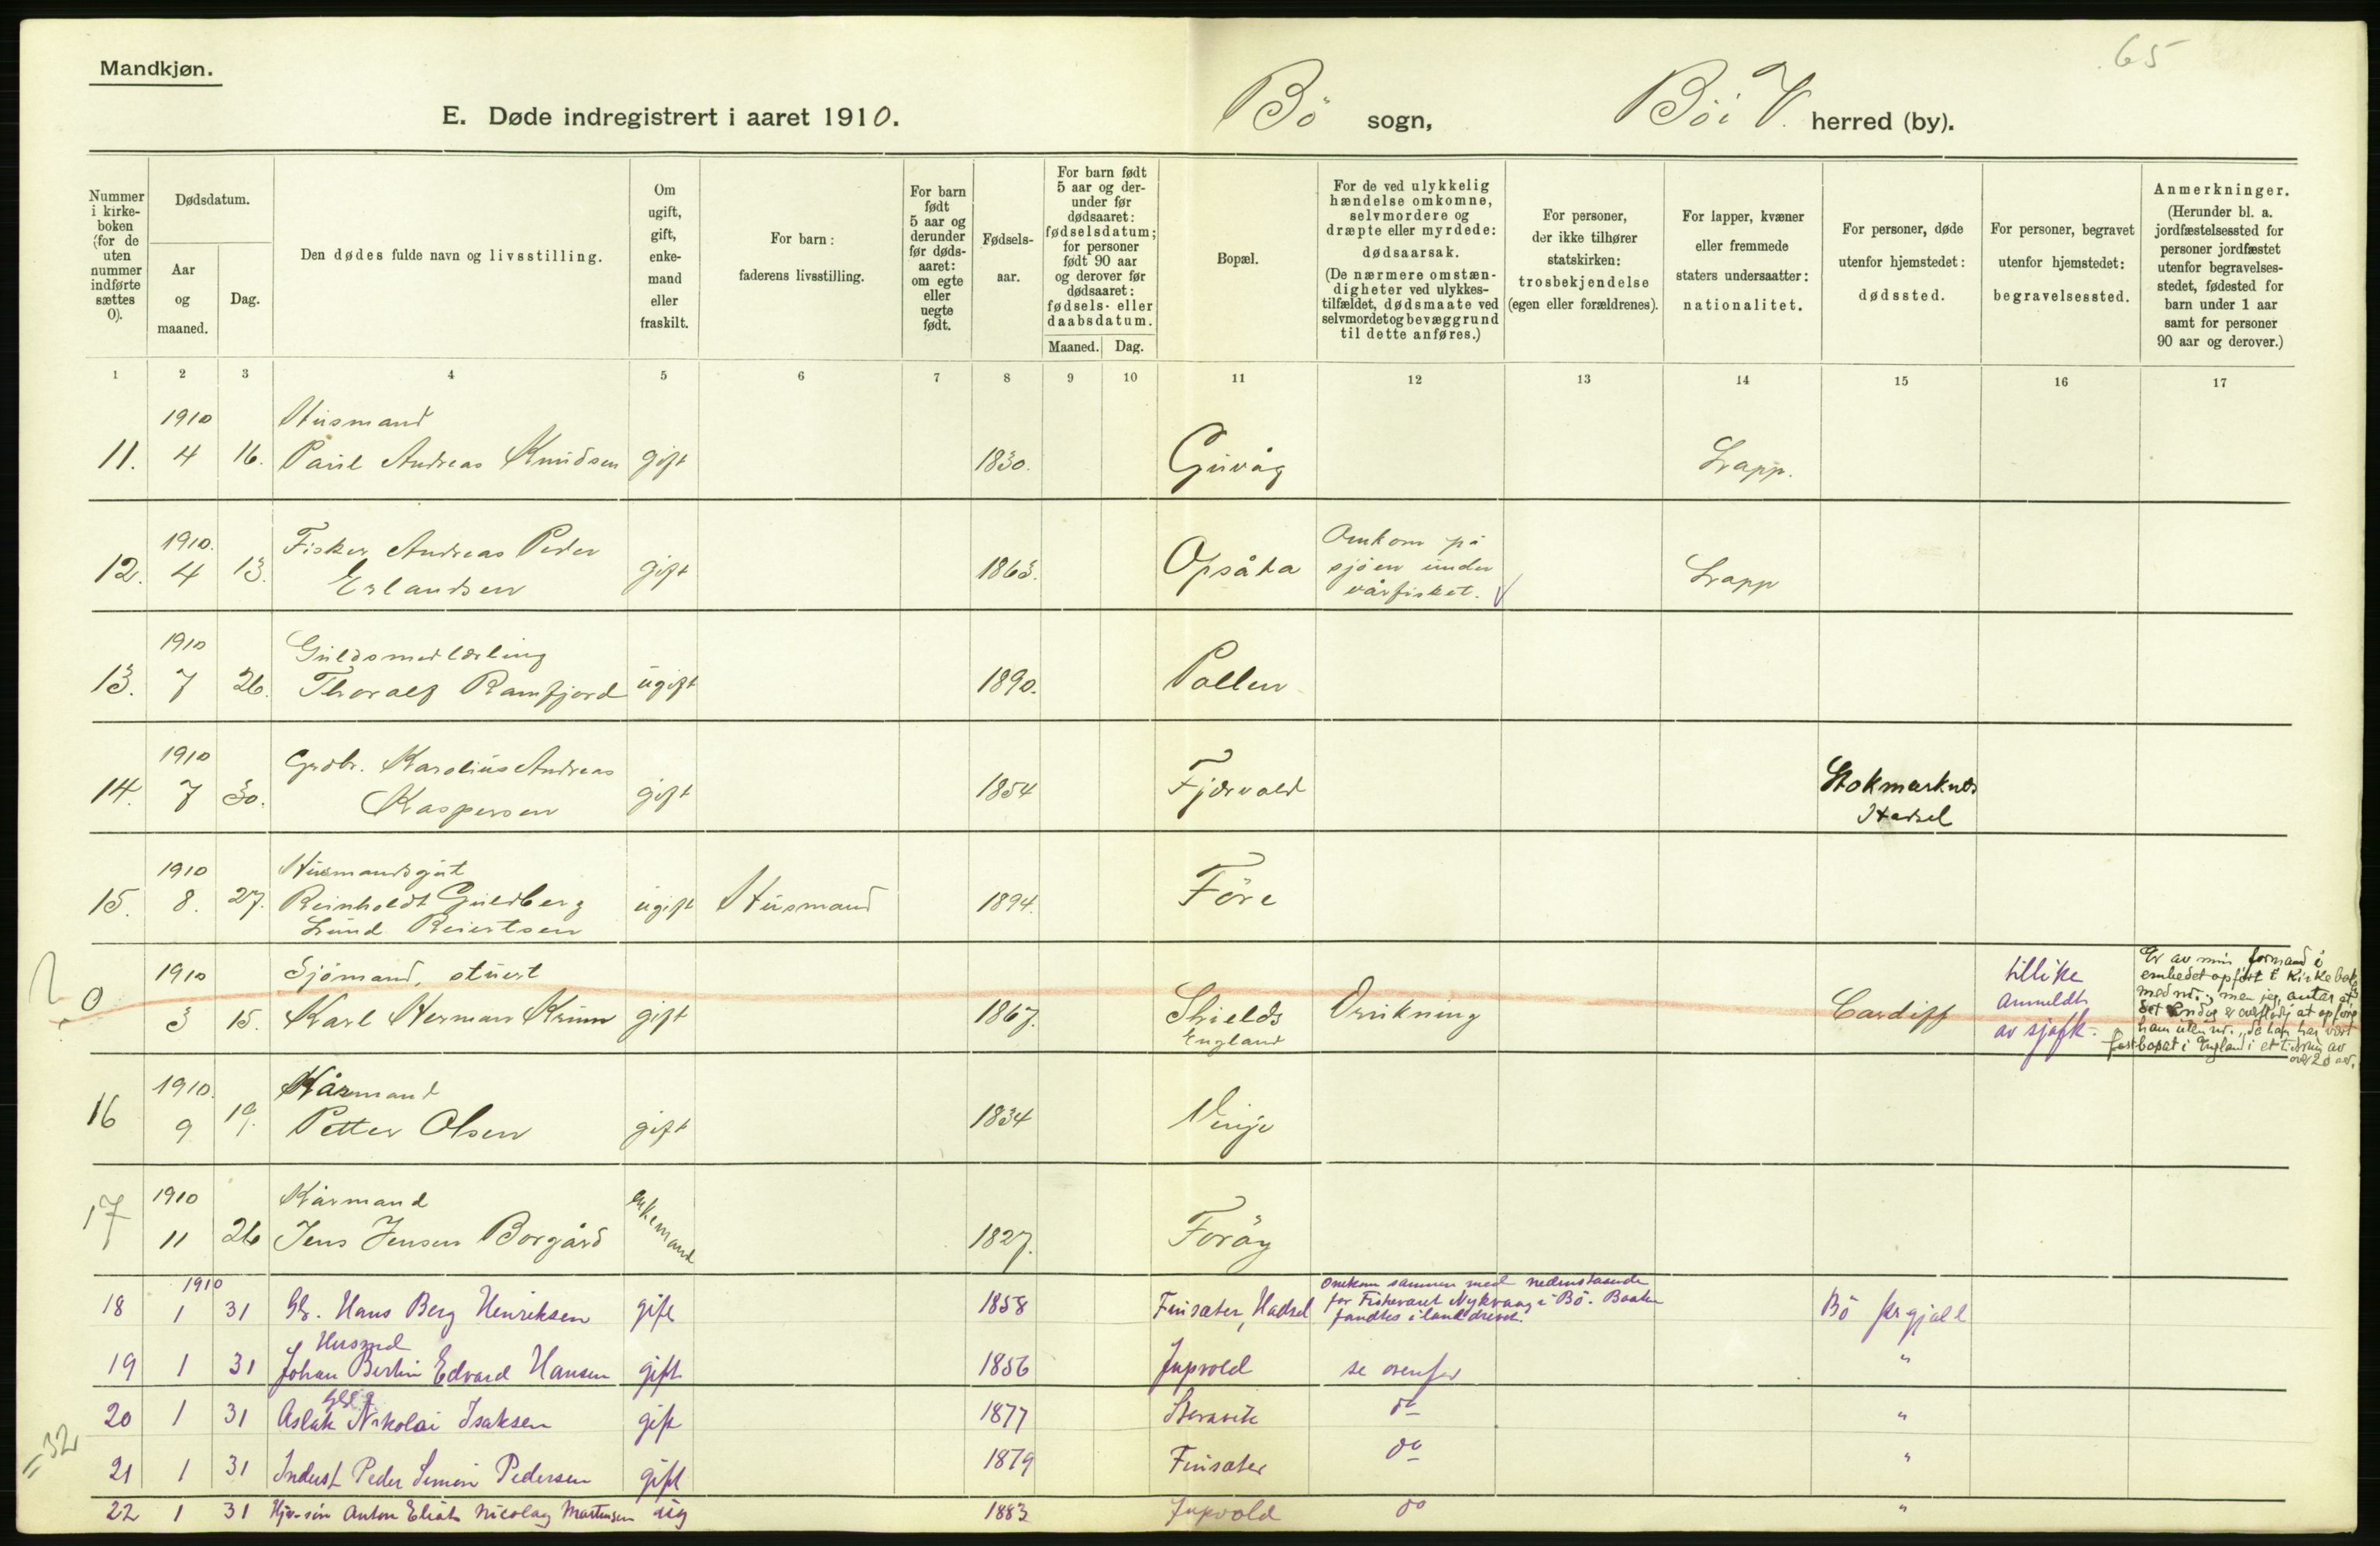 65
Mandkjøn.
E. Døde indregistrert i aaret 1910.
Bö sogn,
Bö i V. herred (by).
Nummer i kirkeboken (for de uten nummer indførte sættes 0).
Dødsdatum.
Aar og maaned.
Dag.
Den dødes fulde navn og livsstilling.
Om ugift, gift, enkemand eller fraskilt.
For barn: faderens livsstilling.
For barn født 5 aar og derunder før dødsaaret: om egte eller uegte født.
Fødselsaar.
For barn født 5 aar og derunder før dødsaaret: fødselsdatum; for personer født 90 aar og derover før dødsaaret: fødsels- eller daabsdatum.
Maaned. Dag.
Bopæl.
For de ved ulykkelig hændelse omkomne, selvmordere og dræpte eller myrdede: dødsaarsak. (De nærmere omstændigheter ved ulykkestilfældet, dødsmaate ved selvmordet og bevæggrund til dette anføres.)
For personer, der ikke tilhører statskirken: trosbekjendelse (egen eller forældrenes).
For lapper, kvæner eller fremmede staters undersaatter: nationalitet.
For personer, døde utenfor hjemstedet: dødssted.
For personer, begravet utenfor hjemstedet: begravelsessted.
Anmerkninger. (Herunder bl. a. jordfæstelsessted for personer jordfæstet utenfor begravelsesstedet, fødested for barn under 1 aar samt for personer 90 aar og derover.)
1 2 3 4 5 6 7 8 9 10 11 12 13 14 15 16 17
1910 Husmand
11. 4 16. Paul Andreas Knudsen gift 1830. Guvåg Lapp.
1910. Fisker Andreas Peder Omkom på
12. 4 13. Erlandsen gift 1863. Opsåta sjöen under Lapp
vårfisket. V
1910 Guldsmedlærling
13. 7 26. Thoralf Ramfjord ugift 1890. Pollen
1910 Grdbr. Karolius Andreas Stokmarknes
14. 7 30. Kaspersen gift 1854 Fjærvold Hadsel
1910 Husmandsgut
15. 8. 27. Reinholdt Guldberg ugift Husmand 1894. Före
Lund Reiertsen
1910 Sjömand, stuert
0 3 15. Karl Herman Krum gift 1867. Shields Drukning Cardiff
England
tillike
anmeldt
av sjøfk.
Er av min formand i
embedet opført i Kirkebok
med nr., men jeg antar at
det er at opføre
ham uten nr., da han har vært
fastboat i England i et tidsrum av
over 20 aar.
1910. Kårmand
16 9 19. Petter Olsen gift 1834 Vinje
1910 Kårmand
17 11 26 Jens Jensen Borgård enkemand 1827. Foröy
1910 Omkom sammen med nedenstaaende
18 1 31 Gb. Hans Berg Henriksen gift 1858 Finsæter, Hadsel for Fiskeværet Nykvaag i Bö. Baaten Bö prgjæld
fandtes i land dreven.
Husmd
19 1 31 Johan Bertin Edvard Hansen gift 1856 Jupvold se ovenfor "
20 1 31 Aslak Nikolai Isaksen gift 1877 do "
21 1 31 Inderst Peder Simon Pedersen gift 1879 Finsæter do "
=32
22 1 31 Anton Elias Nicolay Martinsen ug 1883 Jupvold do "